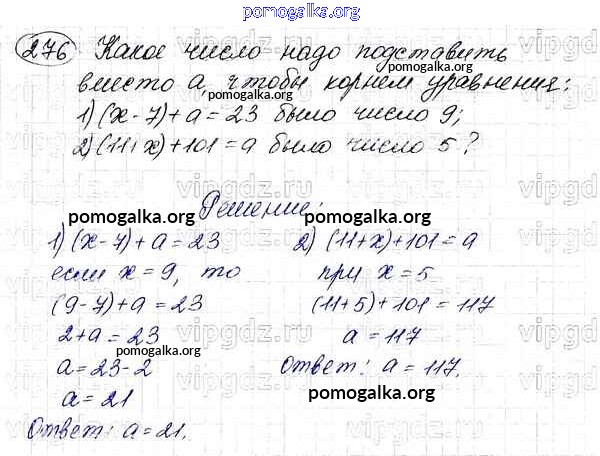 pomogalka.org
276 Какое число надо подставить
вместо а, чтобы корнем уравнения:
1) (x - 7) + a = 23 было число 9;
2) (11 + x) + 101 = a было число 5?
Решение:
1) (x - 7) + a = 23
если x = 9, то
(9 - 7) + a = 23
2 + a = 23
a = 23 - 2
a = 21
Ответ: a = 21.
2) (11 + x) + 101 = a
при x = 5
(11 + 5) + 101 = 117
a = 117
Ответ: a = 117.
pomogalka.org
pomogalka.org
pomogalka.org
pomogalka.org
pomogalka.org
pomogalka.org
vipgdz.ru
vipgdz.ru
vipgdz.ru
vipgdz.ru